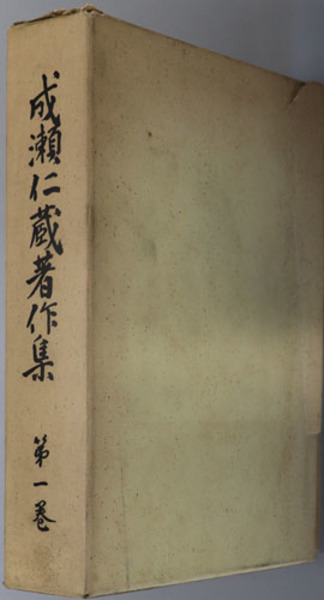 成瀬仁蔵著作集
第一巻